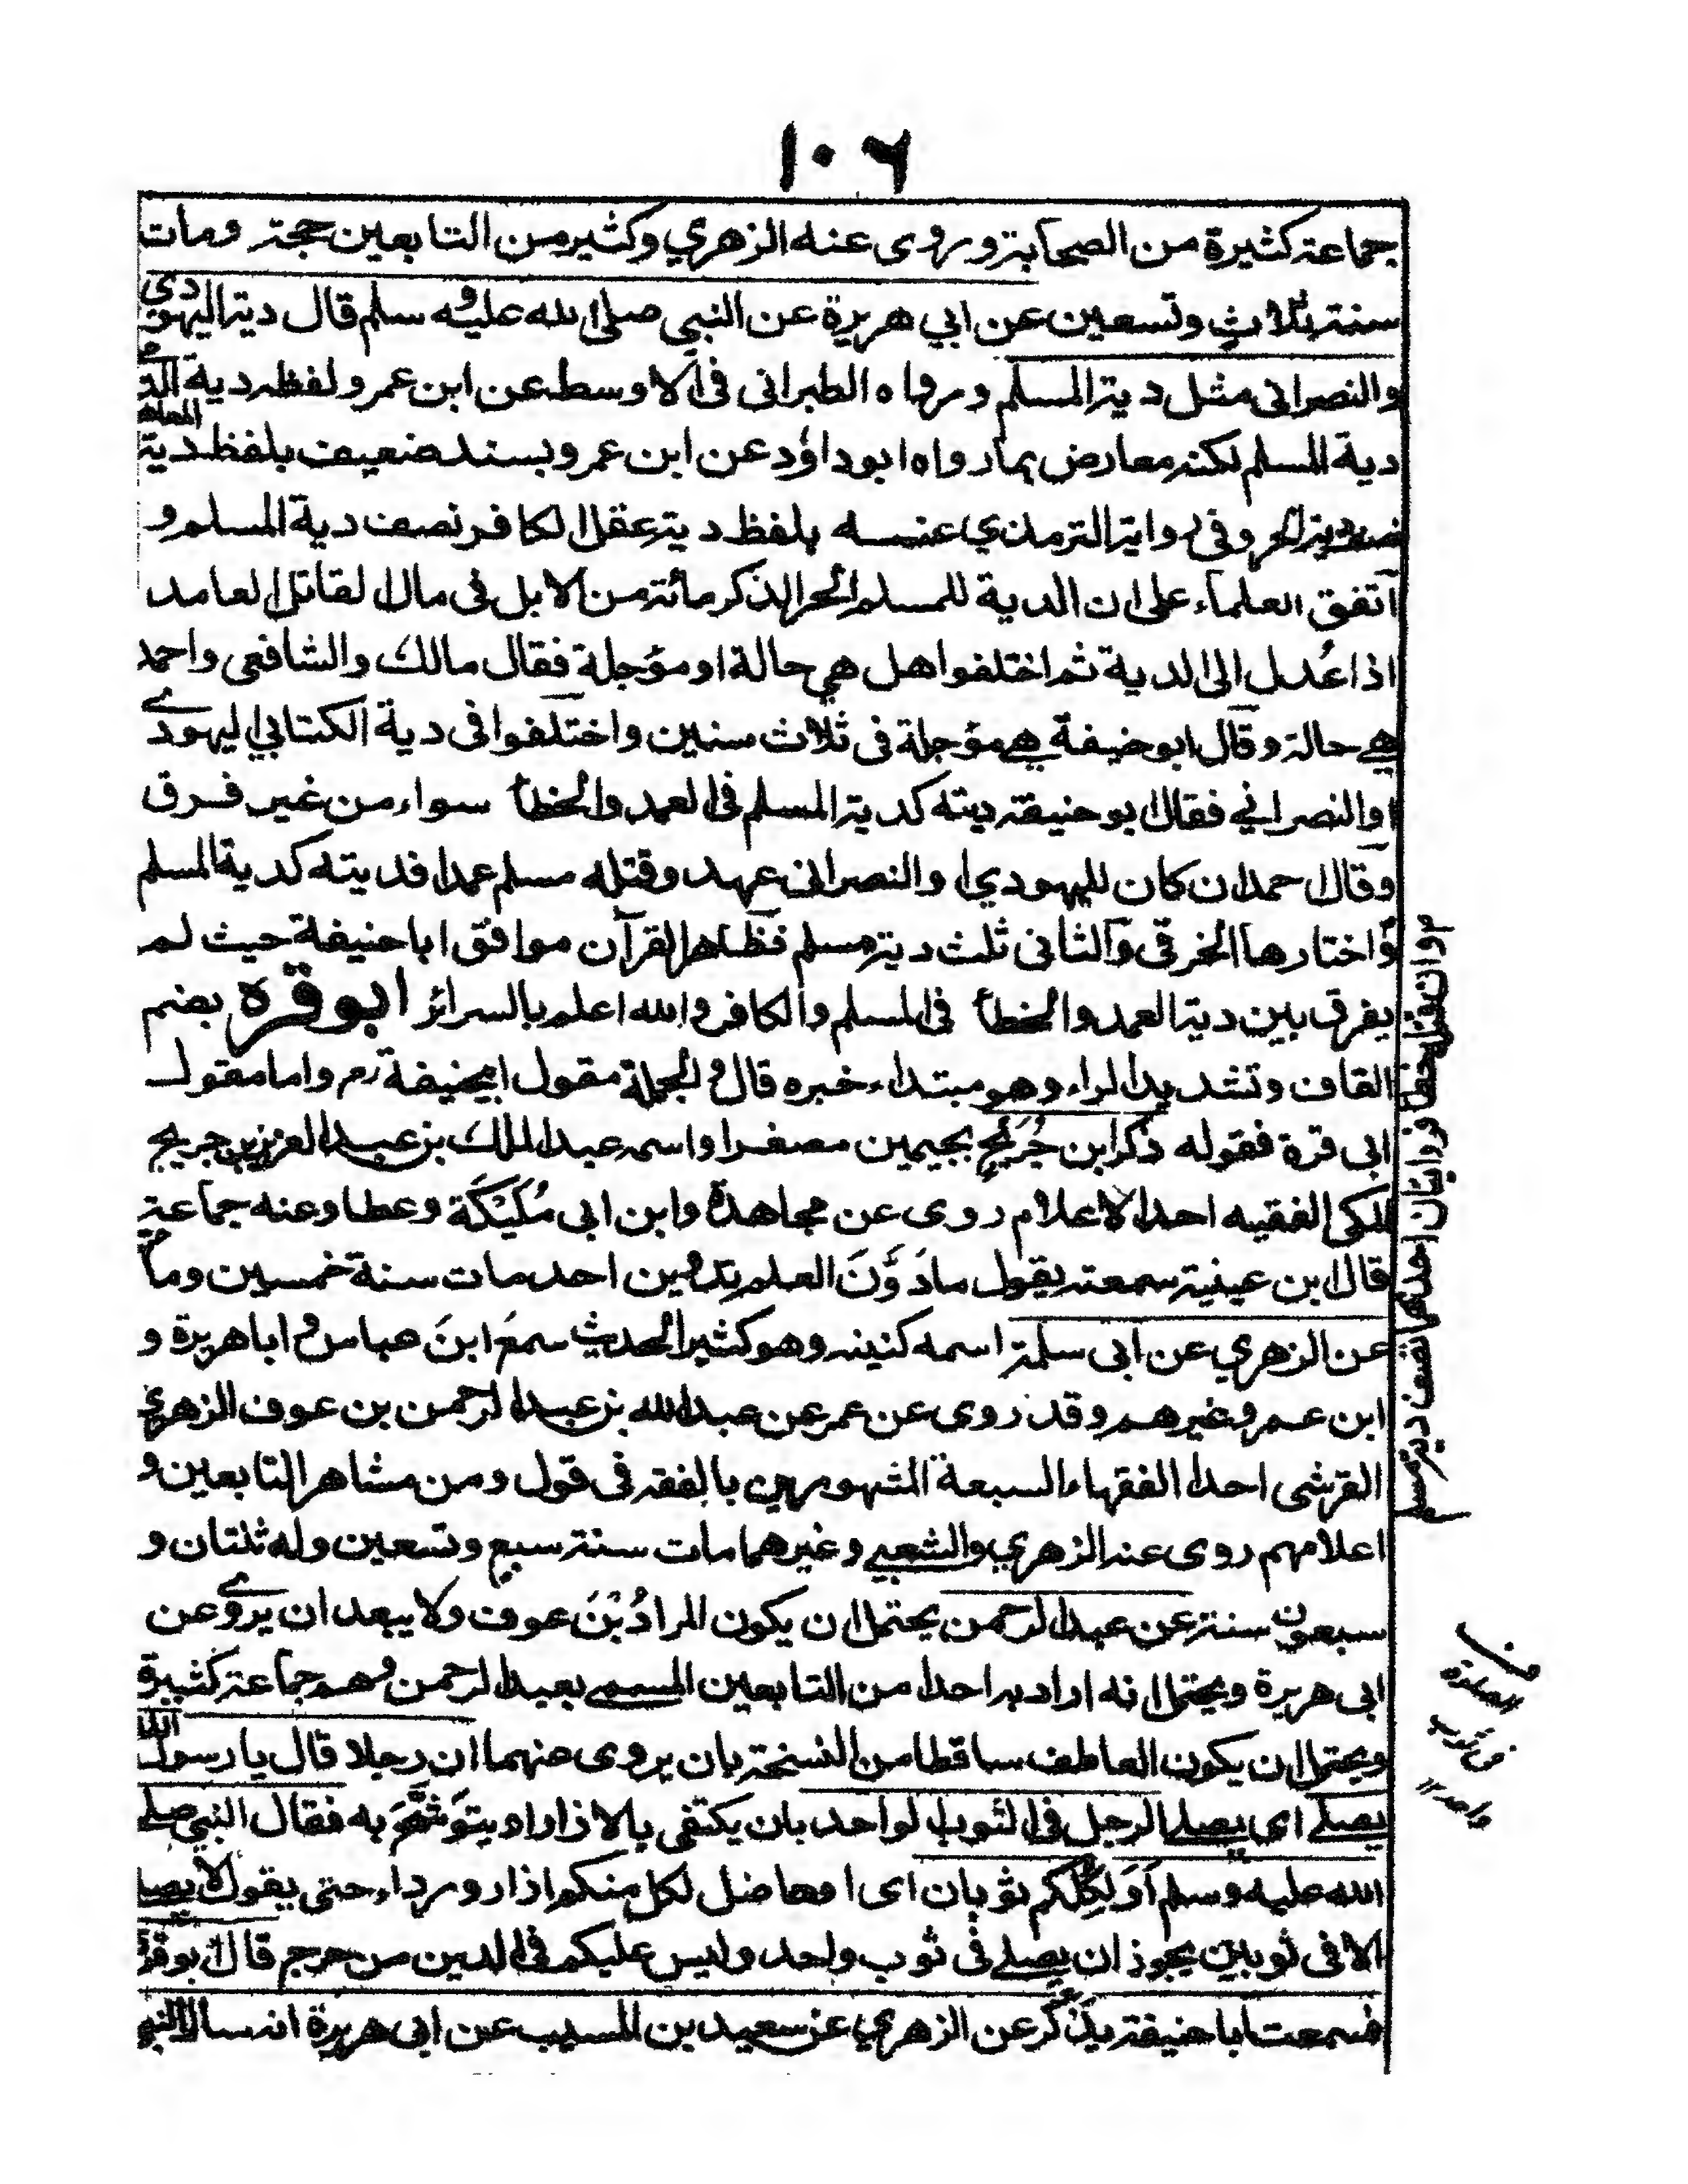 ١٠٦
جماعة كثيرة من الصحابة وروى عنه الزهري وكثير من التابعين حجة ومات
سنة ثلاث وتسعين عن ابي هريرة عن النبي صلى الله عليه وسلم قال دية اليهودي
والنصرانى مثل دية المسلم ورواه الطبرانى فى الاوسط عن ابن عمر ولفظه دية الذمي
دية المسلم لكنه معارض بما رواه ابو داؤد عن ابن عمرو بسند ضعيف بلفظ دية المعاهد
نصف دية الحر وفى رواية الترمذي عنه بلفظ دية عقل الكافر نصف دية المسلم و
اتفق العلماء على ان الدية للمسلم الحر الذكر مائة من الابل فى مال القاتل العامد
اذا عُدل الى الدية ثم اختلفوا هل هي حالة او مؤجلة فقال مالك والشافعى واحمد
هے حالة وقال ابو حنيفة هے مؤجلة فى ثلاث سنين واختلفوا فى دية الكتابي اليهودے
او النصراني فقال ابو حنيفة ديته كدية المسلم فى العمد والخطأ سواء من غير فرق
وقال احمد ان كان لليهودي او النصرانى عهد وقتله مسلم عمدا فديته كدية المسلم
واختارها الخرقى والثانى ثلث دية مسلم فظاهر القرآن موافق ابا حنيفة حيث لم
يفرق بين دية العمد والخطأ فى المسلم والكافر والله اعلم بالسرائر ابو قره بضم
القاف وتشديد الراء وهو مبتداء خبره قال والجملة مقول ابيحنيفة رح واما مقول
ابى قرة فقوله ذكر ابن جُرَيْج بجيمين مصغرا واسمه عبد الملك بن عبد العزيز بن جريج
المكى الفقيه احد الاعلام روى عن مجاهد وابن ابى مُلَيْكَة وعطا وعنه جماعة
قال ابن عيينة سمعته يقول ما دَوَّنَ العلم تدوين احد مات سنة خمسين ومائة
عن الزهري عن ابى سلمة اسمه كنيته وهو كثير الحديث سمع ابنَ عباس و ابا هريرة و
ابن عمر وغيرهم وقد روى عن عمر عن عبد الله بن عبد الرحمن بن عوف الزهري
القرشى احد الفقهاء السبعة المشهورين بالفقه فى قول ومن مشاهر التابعين و
اعلامهم روى عنه الزهري والشعبے وغيرهما مات سنة سبع وتسعين وله ثلتان و
سبعون سنة عن عبد الرحمن يحتمل ان يكون المرادُ بْنَ عوف ولا يبعد ان يروے عن
ابى هريرة ويحتمل انه اراد به احدا من التابعين المسمى بعبد الرحمن وهم جماعة كثيرة
ويحتمل ان يكون العاطف ساقطا من النسخة بان يروى عنهما ان رجلا قال يا رسول الله
يصلے اى يصلے الرجل فى الثوب الواحد بان يكتفى بالازار او يتوشَّحَ به فقال النبي صلے
الله عليه وسلم أوَلِكُلِّكم ثوبان اى احاصل لكل منكم ازار ورداء حتى يقول لا يصلے
الا فى ثوبين يجوز ان يصلے فى ثوب واحد وليس عليكم فى الدين من حرج قال ابو قرة
فسمعت ابا حنيفة يذكر عن الزهري عن سعيد بن المسيب عن ابى هريرة انه سال النبي
وان قتل خطأ فروايتان احدهما نصف دية مسلم
ف
الصلوة
فى ثوب
واحد